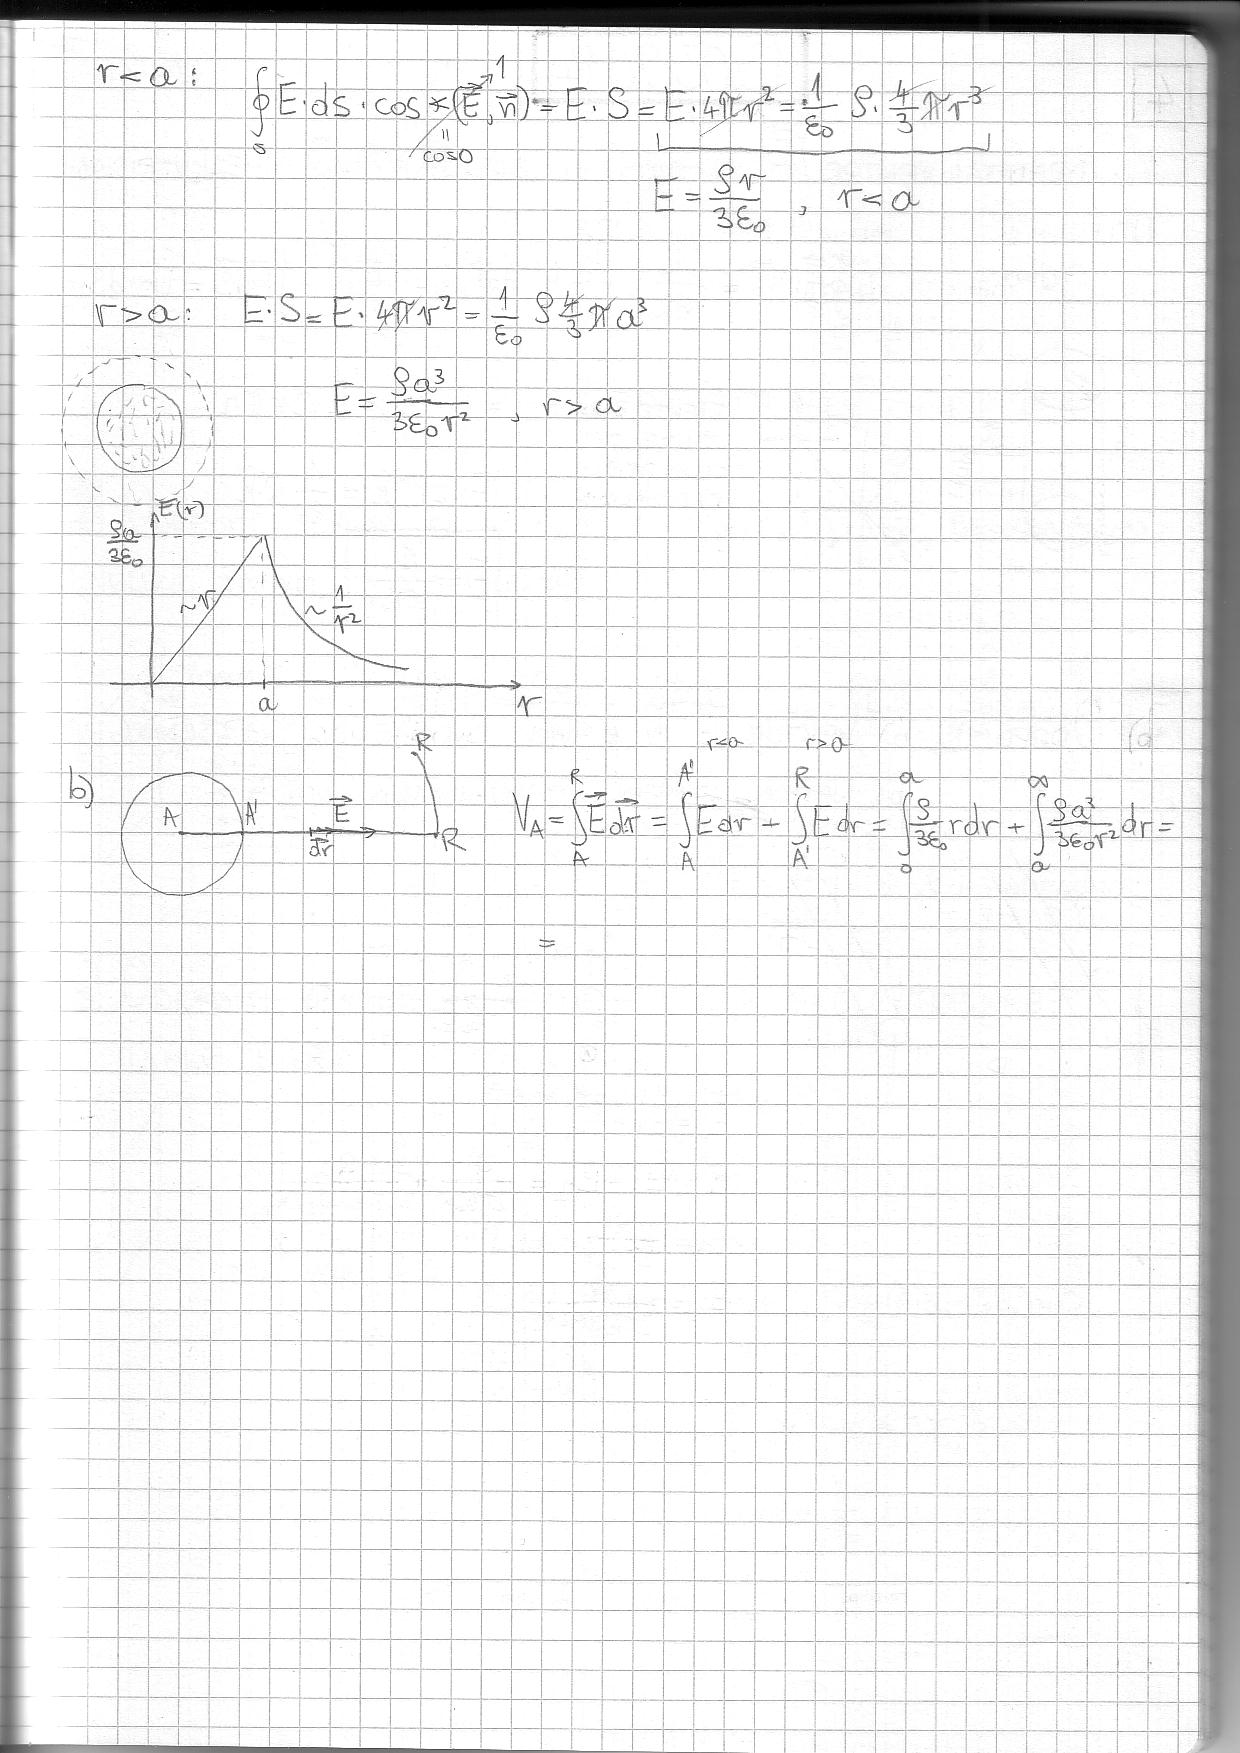 r < a : ∮ₛ E·ds·cos∢(E⃗, n⃗) = E·S = E·4πr² = 1/ε₀ ρ·4/3 πr³
1
cos0
E = ρr/3ε₀ , r < a
r > a : E·S = E·4πr² = 1/ε₀ ρ 4/3 πa³
E = ρa³/3ε₀r² , r > a
E(r)
ρa/3ε₀
~r
~1/r²
a
r
b)
A
A'
E⃗
dr⃗
R
R
r<a r>a
V_A = ∫_A^R E⃗ dr⃗ = ∫_A^A' E dr + ∫_A'^R E dr = ∫_0^a ρ/3ε₀ r dr + ∫_a^∞ ρa³/3ε₀r² dr =
=